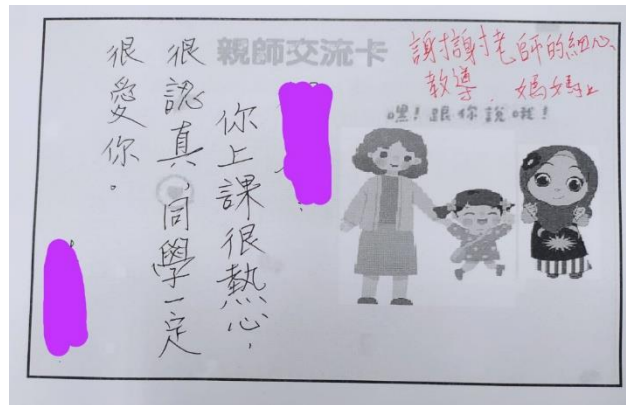 親師交流卡
謝謝老師的細心
教導，媽媽上
嘿！跟你說哦！
你上課很熱心，
很認真，同學一定
很愛你。